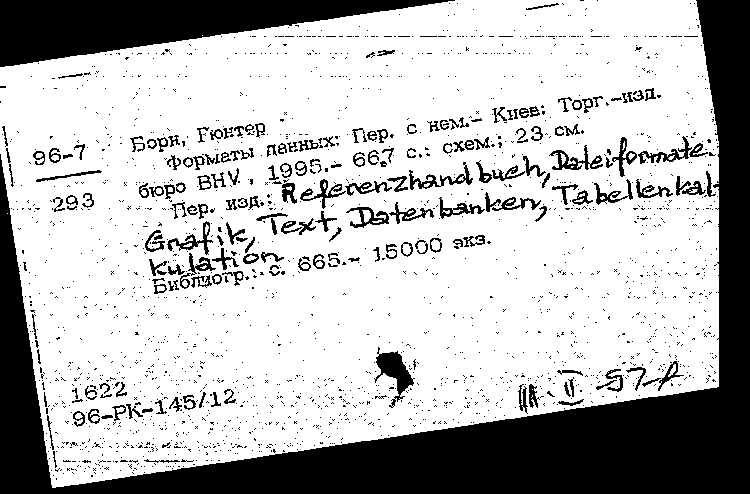 96-7
293
Борн, Гюнтер
Форматы данных: Пер. с нем.- Киев: Торг.-изд.
бюро BHV, 1995.- 667 с.: схем.; 23 см.
Пер. изд.: Referenzhandbuch, Dateiformate:
Grafik, Text, Datenbanken, Tabellenkal-
kulation
Библиогр.: с. 665.- 15000 экз.
1622
96-РК-145/12